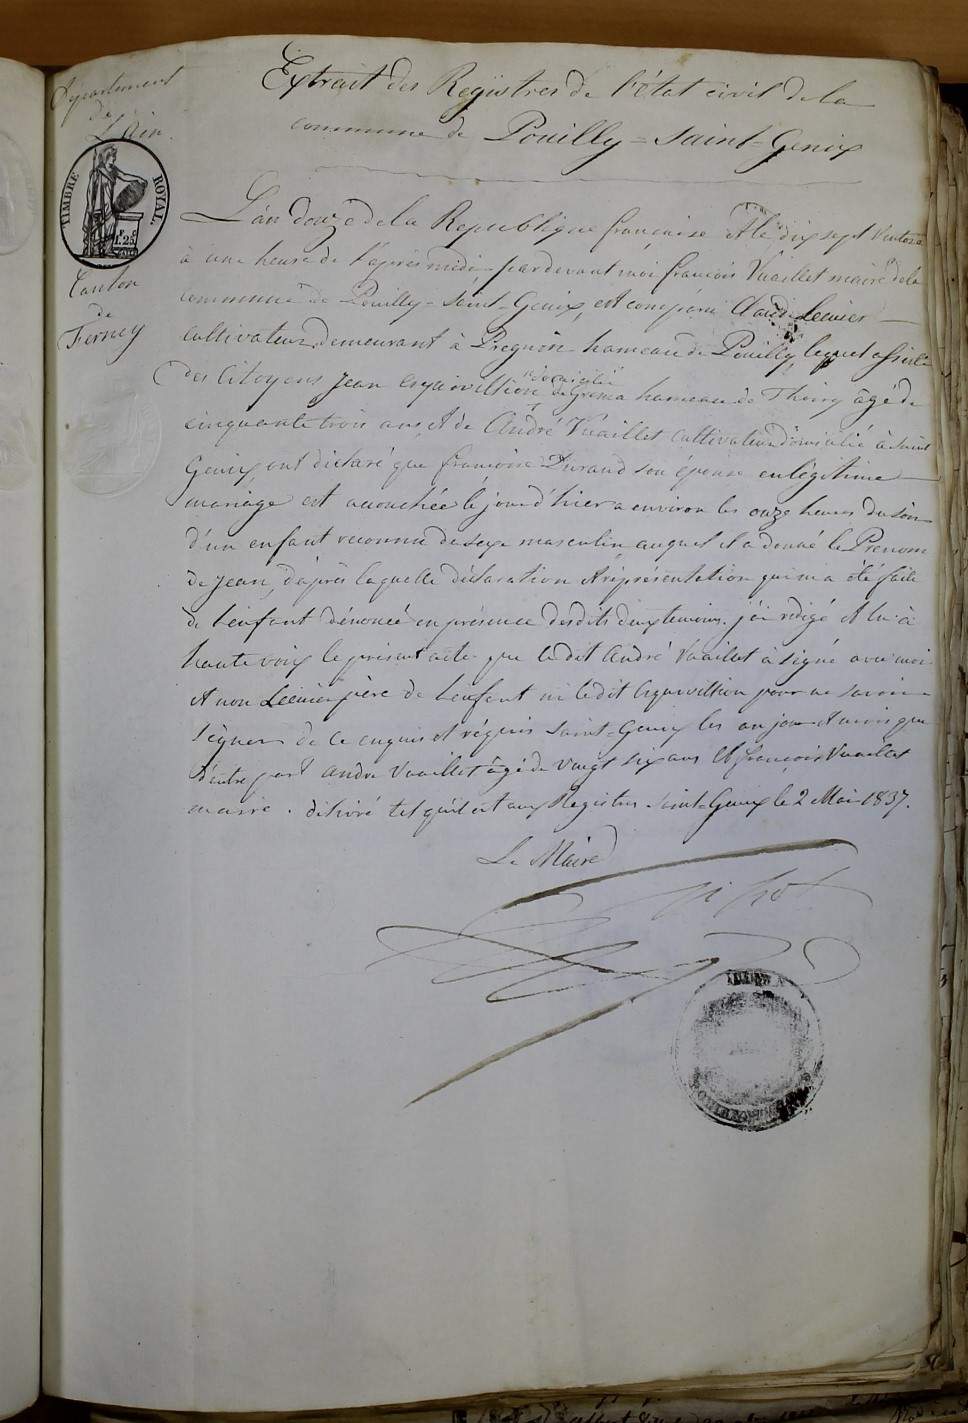 Département
de
l'Ain.
TIMBRE ROYAL.
1.F 25.C
Canton
de
Ferney
Extrait des Registres de l'état civil de la
commune de Pouilly = Saint-Genix
L'an douze de la Republique française et le dix sept Ventose
à une heure de l'après midi, pardevant moi françois Vuaillet maire de la
commune de Pouilly-Saint-Genix, est comparu Claude Lecuier
cultivateur demeurant à Pregnin hameau de Pouilly, lequel assisté
domicilié
des Citoyens Jean hameau de Thoiry âgé de
cinquante trois ans, et de André Vuaillet cultivateur domicilié à Saint
Genix, ont déclaré que françoise Durand son épouse en légitime
mariage est accouchée le jour d'hier a environ les onze heures du soir
d'un enfant reconnu du sexe masculin auquel il a donné le Prenom
de Jean, d'après laquelle déclaration et réprésentation qui m'a été faite
de l'enfant dénoncé en présence desdits deux temoins. j'ai rédigé et lu à
haute voix le présent acte que ledit André Vuaillet à signé avec moi
et non Lecuier père de l'enfant ni ledit pour ne savoir
signer de ce enquis et réquis Saint-Genix les an jour et mois que
d'autre part andré Vuaillet âgé de vingt six ans et françois Vuaillet
maire. délivré tel qu'il est aux Registres Saint-Genix le 2 Mai 1837.
Le Maire